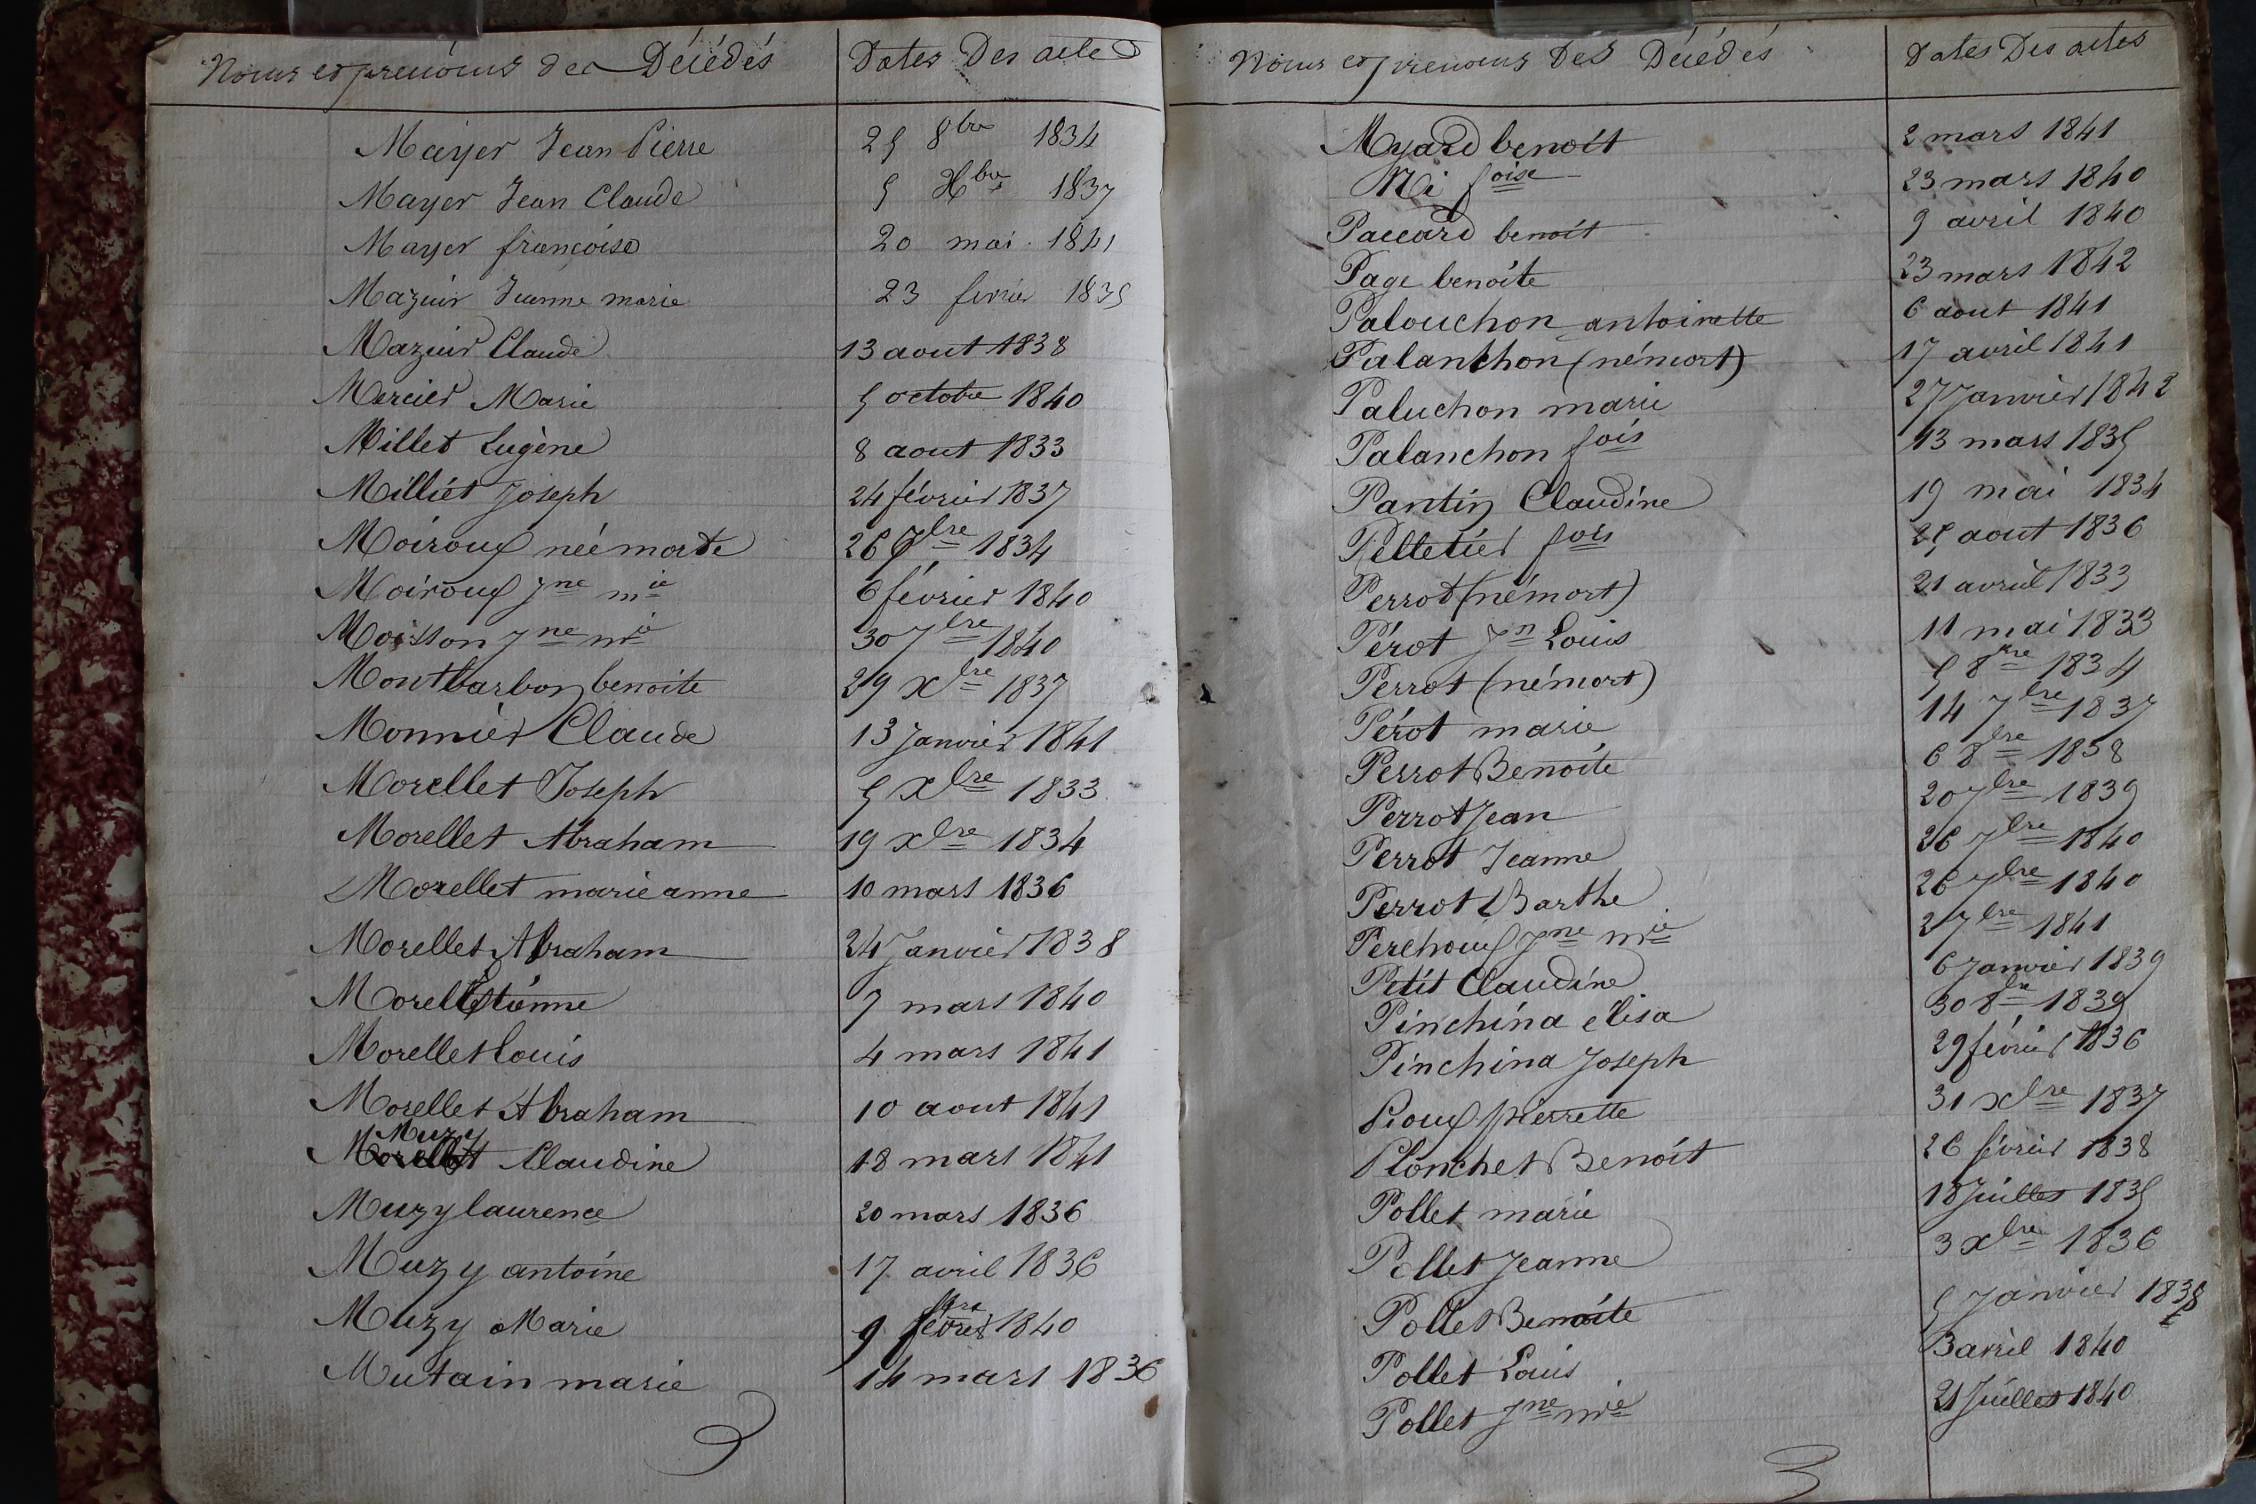 Noms et prénoms des Décédés Dates Des actes
Mayer Jean Pierre 25 8bre 1834
Mayer Jean Claude 5 Xbre 1837
Mayer françoise 20 mai 1841
Mazuir Jeanne marie 23 fevrier 1835
Mazuir Claude 13 aout 1838
Mercier Marie 5 octobre 1840
Millet Eugène 8 aout 1833
Milliet Joseph 24 février 1837
Moiroux née morte 26 7bre 1834
Moiroux Jne mie 6 février 1840
Moisson Jne mie 30 7bre 1840
Montbarbon benoite 29 xbre 1837
Monnier Claude 13 Janvier 1841
Morellet Joseph 5 xbre 1833
Morellet Abraham 19 xbre 1834
Morellet marie anne 10 mars 1836
Morellet Abraham 24 Janvier 1838
Morellet Etienne 7 mars 1840
Morellet Louis 4 mars 1841
Morellet Abraham 10 aout 1841
Muzy
Morellet Claudine 18 mars 1841
Muzy laurence 20 mars 1836
Muzy antoine 17 avril 1836
Muzy Marie 9 1840
Mutain marie 14 mars 1836
Noms et prenoms des Décédés Dates Des actes
Myard benoit 2 mars 1841
foise 23 mars 1840
Paccard benoit 9 avril 1840
Page benoite 23 mars 1842
Palouchon antoinette 6 aout 1841
Palanchon (né mort) 17 avril 1841
Paluchon marie 27 Janvier 1842
Palanchon fois 13 mars 1835
Pantin Claudine 19 mai 1834
Pelletier fois 25 aout 1836
Perrot (né mort) 21 avril 1833
Pérot Jn Louis 11 mai 1833
Perrot (né mort) 5 8bre 1834
Pérot marie 14 7bre 1837
Perrot Benoite 6 8bre 1838
Perrot Jean 20 7bre 1839
Perrot Jeanne 26 7bre 1840
Perrot Barthe 26 7bre 1840
Perchoux Jne mie 2 7bre 1841
Petit Claudine 6 Janvier 1839
Pinchina élisa 30 8bre 1839
Pinchina Joseph 29 février 1836
Pioux pierrette 31 xbre 1837
Plonchet Benoit 26 février 1838
Pollet marie 18 Juillet 1835
Pollet Jeanne 3 xbre 1836
Pollet Benoite 5 Janvier 1838
Pollet Louis 3 avril 1840
Pollet Jne mie 21 Juillet 1840